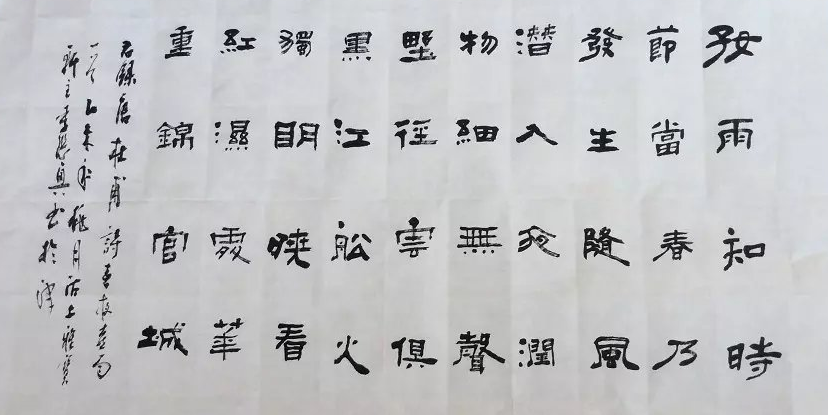 好雨知時
節當春乃
發生隨風
潛入夜潤
物細無聲
野徑雲俱
黑江舩火
獨明曉看
紅濕處華
重錦官城
右錄唐杜甫詩春夜喜雨
一首乙未年桃月沽上雅
軒主李真書於津